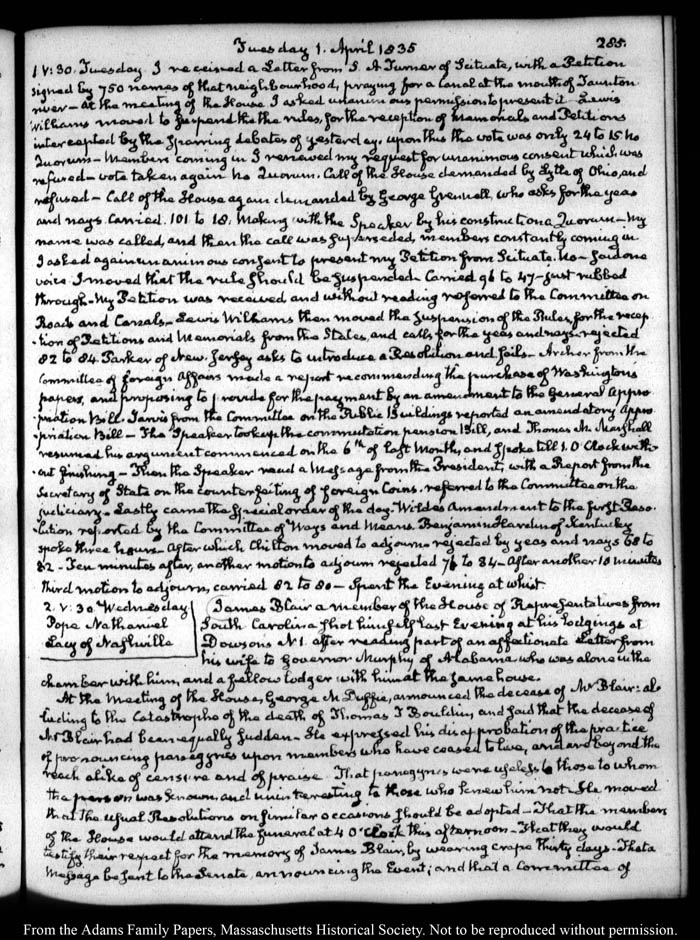 Tuesday 1. April 1835
285.
1 V:30. Tuesday. I received a Letter from S. A Turner of Scituate, with a Petition
signed by 750 names of that neighbourhood, praying for a Canal at the mouth of Taunton
river — at the meeting of the House I asked unanimous permission to present it — Lewis
Williams moved to suspend the the rules, for the reception of Memorials and Petitions
intercepted by the sparring debates of yesterday. upon this the vote was only 24 to 15 no
Quorum — Members coming in I renewed my request for unanimous consent which was
refused — vote taken again no Quorum. Call of the House demanded by Lytle of Ohio, and
refused — Call of the House again demanded by George Grennell, who asks for the yeas
and nays. Carried. 101 to 18. Making with the Speaker by his construction a Quorum — My
name was called, and then the call was superseded, members constantly coming in
I asked again unanimous consent to present my Petition from Scituate. No — said one
voice. I moved that the rule should be suspended — Carried 96 to 47 — just rubbed
through — My Petition was received and without reading referred to the Committee on
Roads and Canals — Lewis Williams then moved the suspension of the Rules, for the recep
-tion of Petitions and Memorials from the States, and calls for the yeas and nays. rejected
82 to 84. Parker of New Jersey asks to introduce a Resolution and fails — Archer from the
Committee of foreign Affairs made a report recommending the purchase of Washington's
papers, and proposing to provide for the payment by an amendment to the General Appro
-priation Bill. Jarvis from the Committee on the Public Buildings reported an amendatory Appro
-priation Bill — The Speaker took up the commutation pension Bill, and Thomas M. Marshall
resumed his argument commenced on the 6th of last Month, and spoke till 1. O'Clock with-
out finishing — Then the Speaker read a Message from the President, with a Report from the
Secretary of State on the counterfeiting of foreign Coins. referred to the Committee on the
judiciary — Lastly came the special order of the day. Wilde's Amendment to the first Reso-
-lution reported by the Committee of Ways and Means. Benjamin Hardin of Kentucky
spoke three hours — After which Chilton moved to adjourn — rejected by yeas and nays 68 to
82 — Ten minutes after, another motion to adjourn rejected 76 to 84 — After another 10 minutes
third motion to adjourn, carried 82 to 80 — Spent the Evening at whist
2. V:30 Wednesday
Pope Nathaniel
Lacy of Nashville
James Blair a member of the House of Representatives from
South Carolina shot himself last Evening at his lodgings at
Dowson's N 1. after reading part of an affectionate Letter from
his wife to Governor Murphy of Alabama who was alone in the
chamber with him, and a fellow lodger with him at the same house.
At the Meeting of the House, George McDuffie, announced the decease of Mr Blair: al-
luding to the Catastrophe of the death of Thomas T Bouldin, and said that the decease of
Mr Blair had been equally sudden — He expressed his disapprobation of the practice
of pronouncing panegyrics upon members who have ceased to live, and are beyond the
reach alike of censure and of praise — That panegyrics were useless to those to whom
the person was known and uninteresting to those who knew him not — He moved
that the usual Resolutions on similar occasions should be adopted — That the members
of the House would attend the funeral at 4 O'Clock this afternoon — That they would
testify their respect for the memory of James Blair, by wearing crape thirty days — That a
Message be sent to the Senate, announcing the Event; and that a Committee of
From the Adams Family Papers, Massachusetts Historical Society. Not to be reproduced without permission.